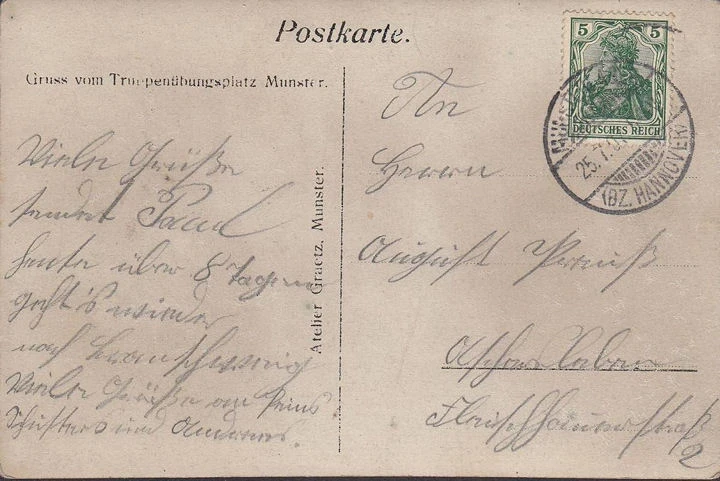 Postkarte.
Gruss vom Truppenübungsplatz Munster.
Viele Grüße
sendet Paul
heute über 8 Tagen
geht's wieder
nach Braunschweig
Viele Grüße an
Schusters und Anderes.
Atelier Graetz, Munster.
5 5
DEUTSCHES REICH
25.7.
(BZ. HANNOVER)
An
Herrn
August Preuß
Aschersleben
Fleischhauerstraße
2